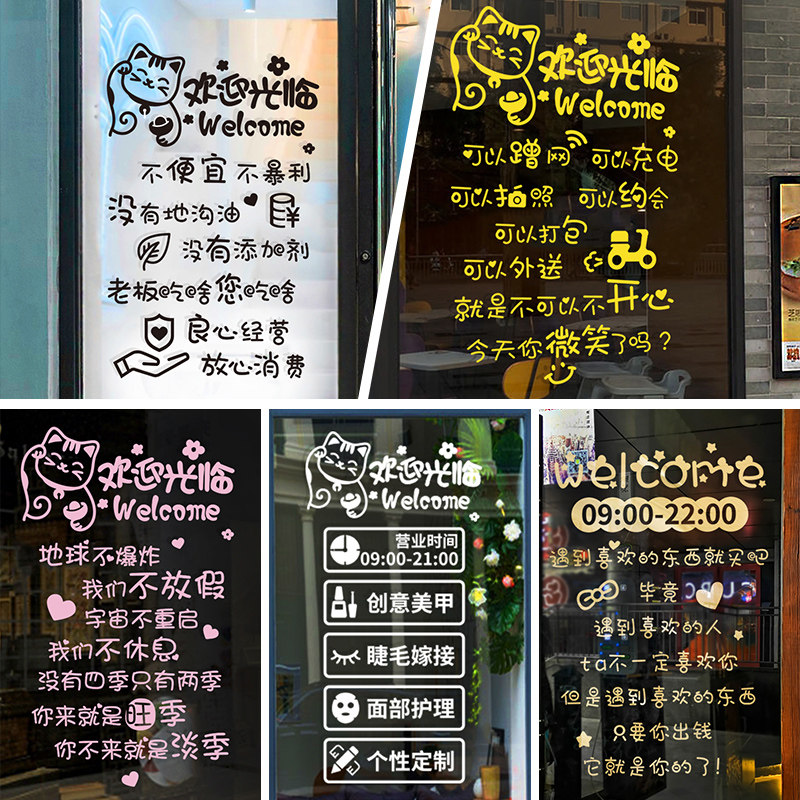 欢迎光临
Welcome
不便宜不暴利
没有地沟油
没有添加剂
老板吃啥您吃啥
良心经营
放心消费
欢迎光临
Welcome
可以蹭网 可以充电
可以拍照 可以约会
可以打包
可以外送
就是不可以不开心
今天你微笑了吗？
欢迎光临
Welcome
地球不爆炸
我们不放假
宇宙不重启
我们不休息
没有四季只有两季
你来就是旺季
你不来就是淡季
欢迎光临
Welcome
营业时间
09:00-21:00
创意美甲
睫毛嫁接
面部护理
个性定制
welcome
09:00-22:00
遇到喜欢的东西就买吧
毕竟
遇到喜欢的人
ta不一定喜欢你
但是遇到喜欢的东西
只要你出钱
它就是你的了！